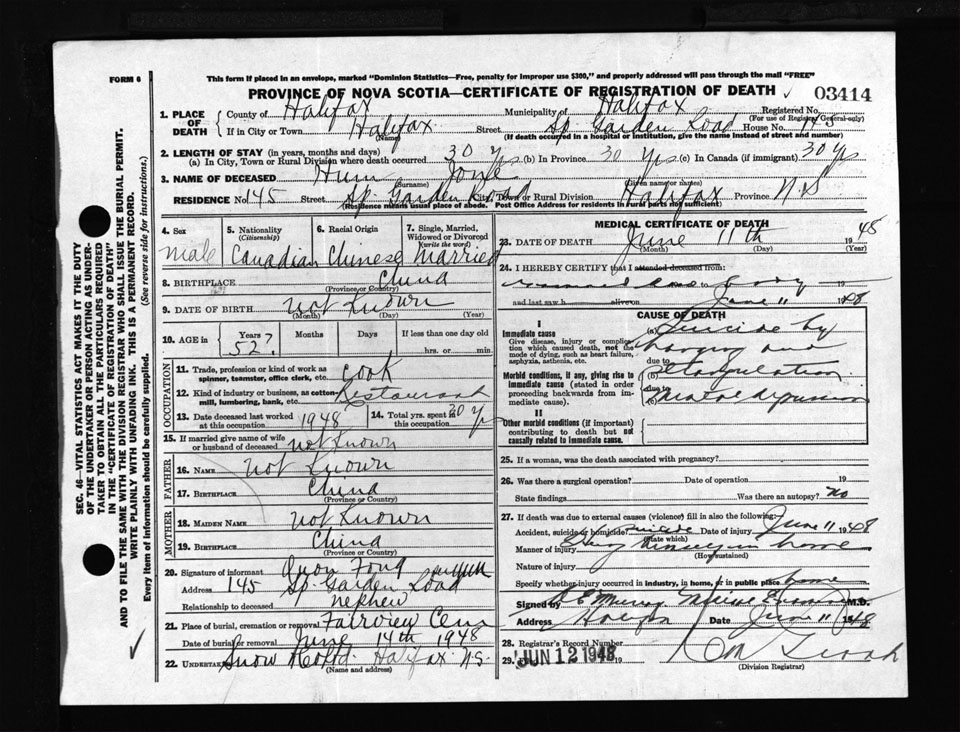 FORM 6
This form if placed in an envelope, marked "Dominion Statistics—Free, penalty for improper use $300," and properly addressed will pass through the mail "FREE"
PROVINCE OF NOVA SCOTIA—CERTIFICATE OF REGISTRATION OF DEATH ✓ 03414
1. PLACE OF DEATH
County of Halifax Municipality of Halifax Registered No.
(For use of Registrar General only)
If in City or Town Halifax Street Sp. Garden Road House No. 145
(Name) (If death occurred in a hospital or institution, give the name instead of street and number)
2. LENGTH OF STAY (in years, months and days)
(a) In City, Town or Rural Division where death occurred 30 Yrs (b) In Province 30 Yrs (c) In Canada (if immigrant) 30 Yrs
3. NAME OF DECEASED Hum
(Surname) (Given name or names)
RESIDENCE No 145 Street Sp. Garden Road City, Town or Rural Division Halifax Province N.S
(Residence means usual place of abode. Post Office Address for residents in rural parts not sufficient)
4. Sex Male
5. Nationality (Citizenship) Canadian
6. Racial Origin Chinese
7. Single, Married, Widowed or Divorced (write the word) Married
8. BIRTHPLACE China
(Province or Country)
9. DATE OF BIRTH not Known
(Month) (Day) (Year)
10. AGE in Years? Months Days If less than one day old
52? hrs. or min.
OCCUPATION
11. Trade, profession or kind of work as spinner, teamster, office clerk, etc. Cook
12. Kind of industry or business, as cotton-mill, lumbering, bank, etc. Restaurant
13. Date deceased last worked at this occupation 1948
14. Total yrs. spent in this occupation 30 Y
15. If married give name of wife or husband of deceased not Known
FATHER
16. NAME not Known
17. BIRTHPLACE China
(Province or Country)
MOTHER
18. MAIDEN NAME not Known
19. BIRTHPLACE China
(Province or Country)
20. Signature of informant Quon Fong
Address 145 Sp. Garden Road
Relationship to deceased nephew
21. Place of burial, cremation or removal Fairview Cem
Date of burial or removal June 14th 1948
22. UNDERTAKER Snow & Co Ltd. Halifax N.S.
(Name and address)
MEDICAL CERTIFICATE OF DEATH
23. DATE OF DEATH June 11th 1948
(Month) (Day) (Year)
24. I HEREBY CERTIFY that I attended deceased from:
19
and last saw h alive on June 11 1948
CAUSE OF DEATH
I
Immediate cause
Give disease, injury or complication which caused death, not the mode of dying, such as heart failure, asphyxia, asthenia, etc.
(a) Suicide by
hanging and
due to
Morbid conditions, if any, giving rise to immediate cause (stated in order proceeding backwards from immediate cause).
(b) strangulation
due to
(c) Mental depression
II
Other morbid conditions (if important) contributing to death but not causally related to immediate cause.
25. If a woman, was the death associated with pregnancy?
26. Was there a surgical operation? Date of operation 19
State findings Was there an autopsy? no
27. If death was due to external causes (violence) fill in also the following:
Accident, suicide or homicide? suicide Date of injury June 11 1948
(State which)
Manner of injury home
(How sustained)
Nature of injury
Specify whether injury occurred in industry, in home, or in public place home
Signed by Murray M.D.
Address Halifax Date June 11 1948
28. Registrar's Record Number
29. JUN 12 1948 19
(Division Registrar)
SEC. 46—VITAL STATISTICS ACT MAKES IT THE DUTY
OF THE UNDERTAKER OR PERSON ACTING AS UNDERTAKER TO OBTAIN ALL THE PARTICULARS REQUIRED
IN THE "CERTIFICATE OF REGISTRATION OF DEATH"
AND TO FILE THE SAME WITH THE DIVISION REGISTRAR WHO SHALL ISSUE THE BURIAL PERMIT.
WRITE PLAINLY WITH UNFADING INK. THIS IS A PERMANENT RECORD.
Every item of information should be carefully supplied. (See reverse side for instructions.)